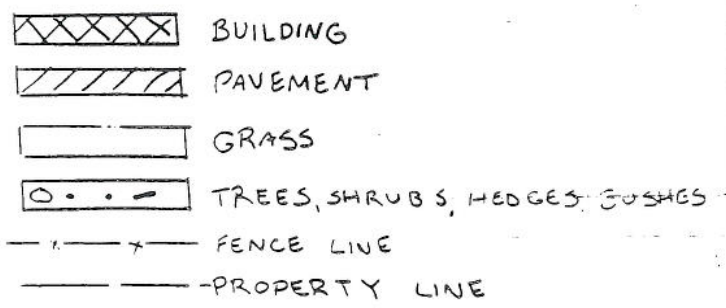 BUILDING
PAVEMENT
GRASS
TREES, SHRUBS, HEDGES, BUSHES
FENCE LINE
PROPERTY LINE